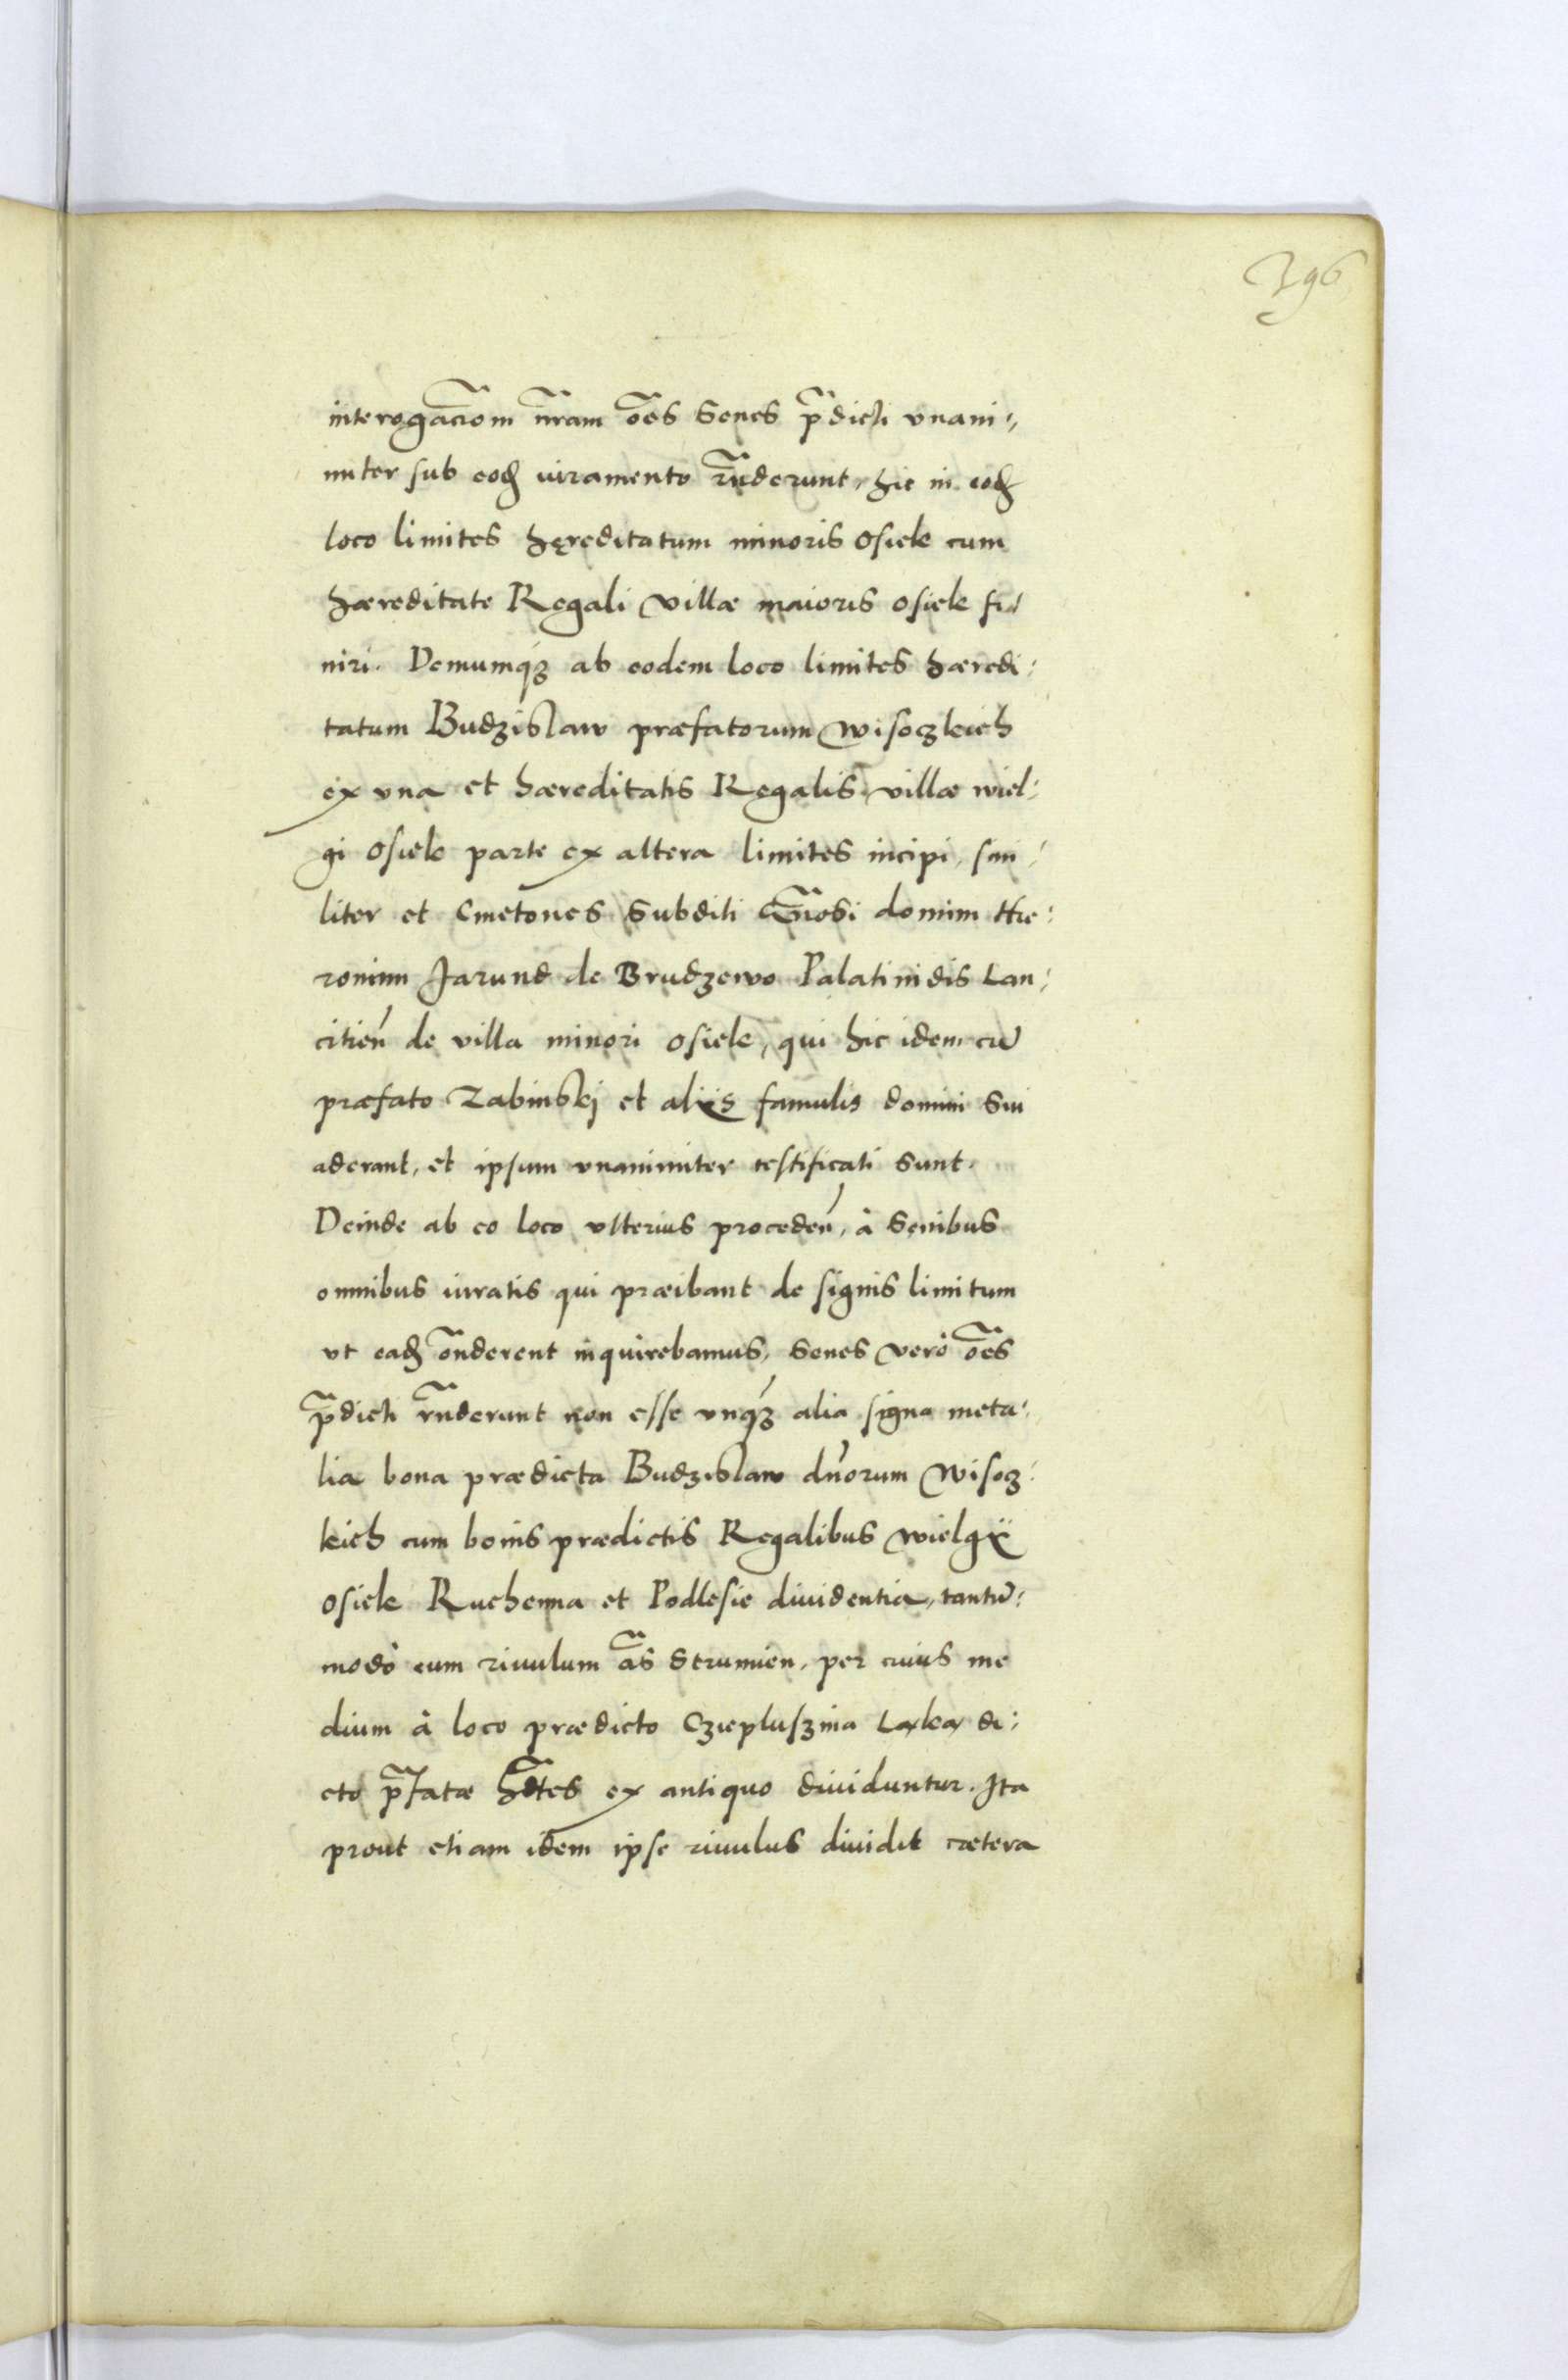 196
interogac̃iom nr̃am oẽs Senes p̃dicti vnani⸗
miter sub eodꝫ iuramento rñderunt, hic in eodꝫ
loco limites hęreditatum minoris Osiek cum
hæreditate Regali Villæ maioris Osiek fi⸗
niri. Demumqꝫ ab eodem loco limites hæredi⸗
tatum Budzislaw præfatorum Wisoczkich
ex vna et hæreditatis Regalis villæ wiel⸗
gi Osiek parte ex altera limites incipi, simi⸗
liter et Cmetones Subditi Gñosi domini Hie⸗
ronimi Jarund de Brudzewo Palatinidis Lan⸗
citien̄ de villa minori Osiek, qui hic idem cū
præfato Zabinskj et alijs famulis domini Sui
aderant, et ipsum vnanimiter testificati sunt.
Deinde ab eo loco vlterius proceden̄, à Senibus
omnibus iuratis qui præibant de signis limitum
vt eadꝫ on̄derent inquirebamus, Senes verò oẽs
p̃dicti rñderunt non esse vnqꝫ alia signa meta⸗
lia bona prædicta Budzislaw dn̄orum Wisocz⸗
kich cum bonis prædictis Regalibus Wielgÿ
Osiek Ruchenna et Podlesie diuidentia, tantū⸗
modò eum riuulum as̃ Strumien, per cuius me
dium à loco prædicto Czieplusznia Laka di⸗
cto p̃fatæ hd̃tes ex antiquo diuiduntur. Ita
prout etiam idem ipse riuulus diuidit cætera